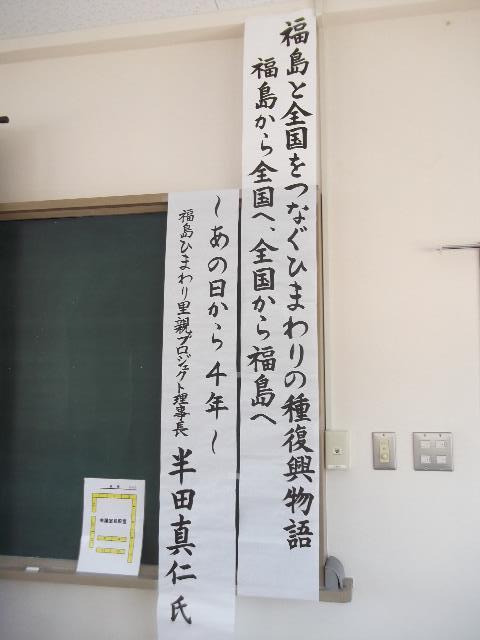 福島と全国をつなぐひまわりの種復興物語
福島から全国へ、全国から福島へ
~あの日から4年~
福島ひまわり里親プロジェクト理事長 半田真仁氏